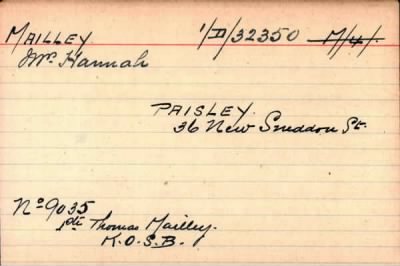 MAILLEY. 1/D/32350 M/4/.
Mrs. Hannah
PAISLEY.
36 New Sneddon St.
No 9035
Pte Thomas Mailley.
K.O.S.B.